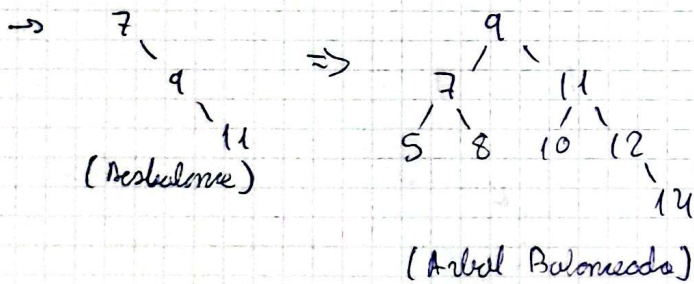 → 7
9
11
(Desbalance)
⇒
9
7 11
5 8 10 12
14
(Arbol Balanceado)